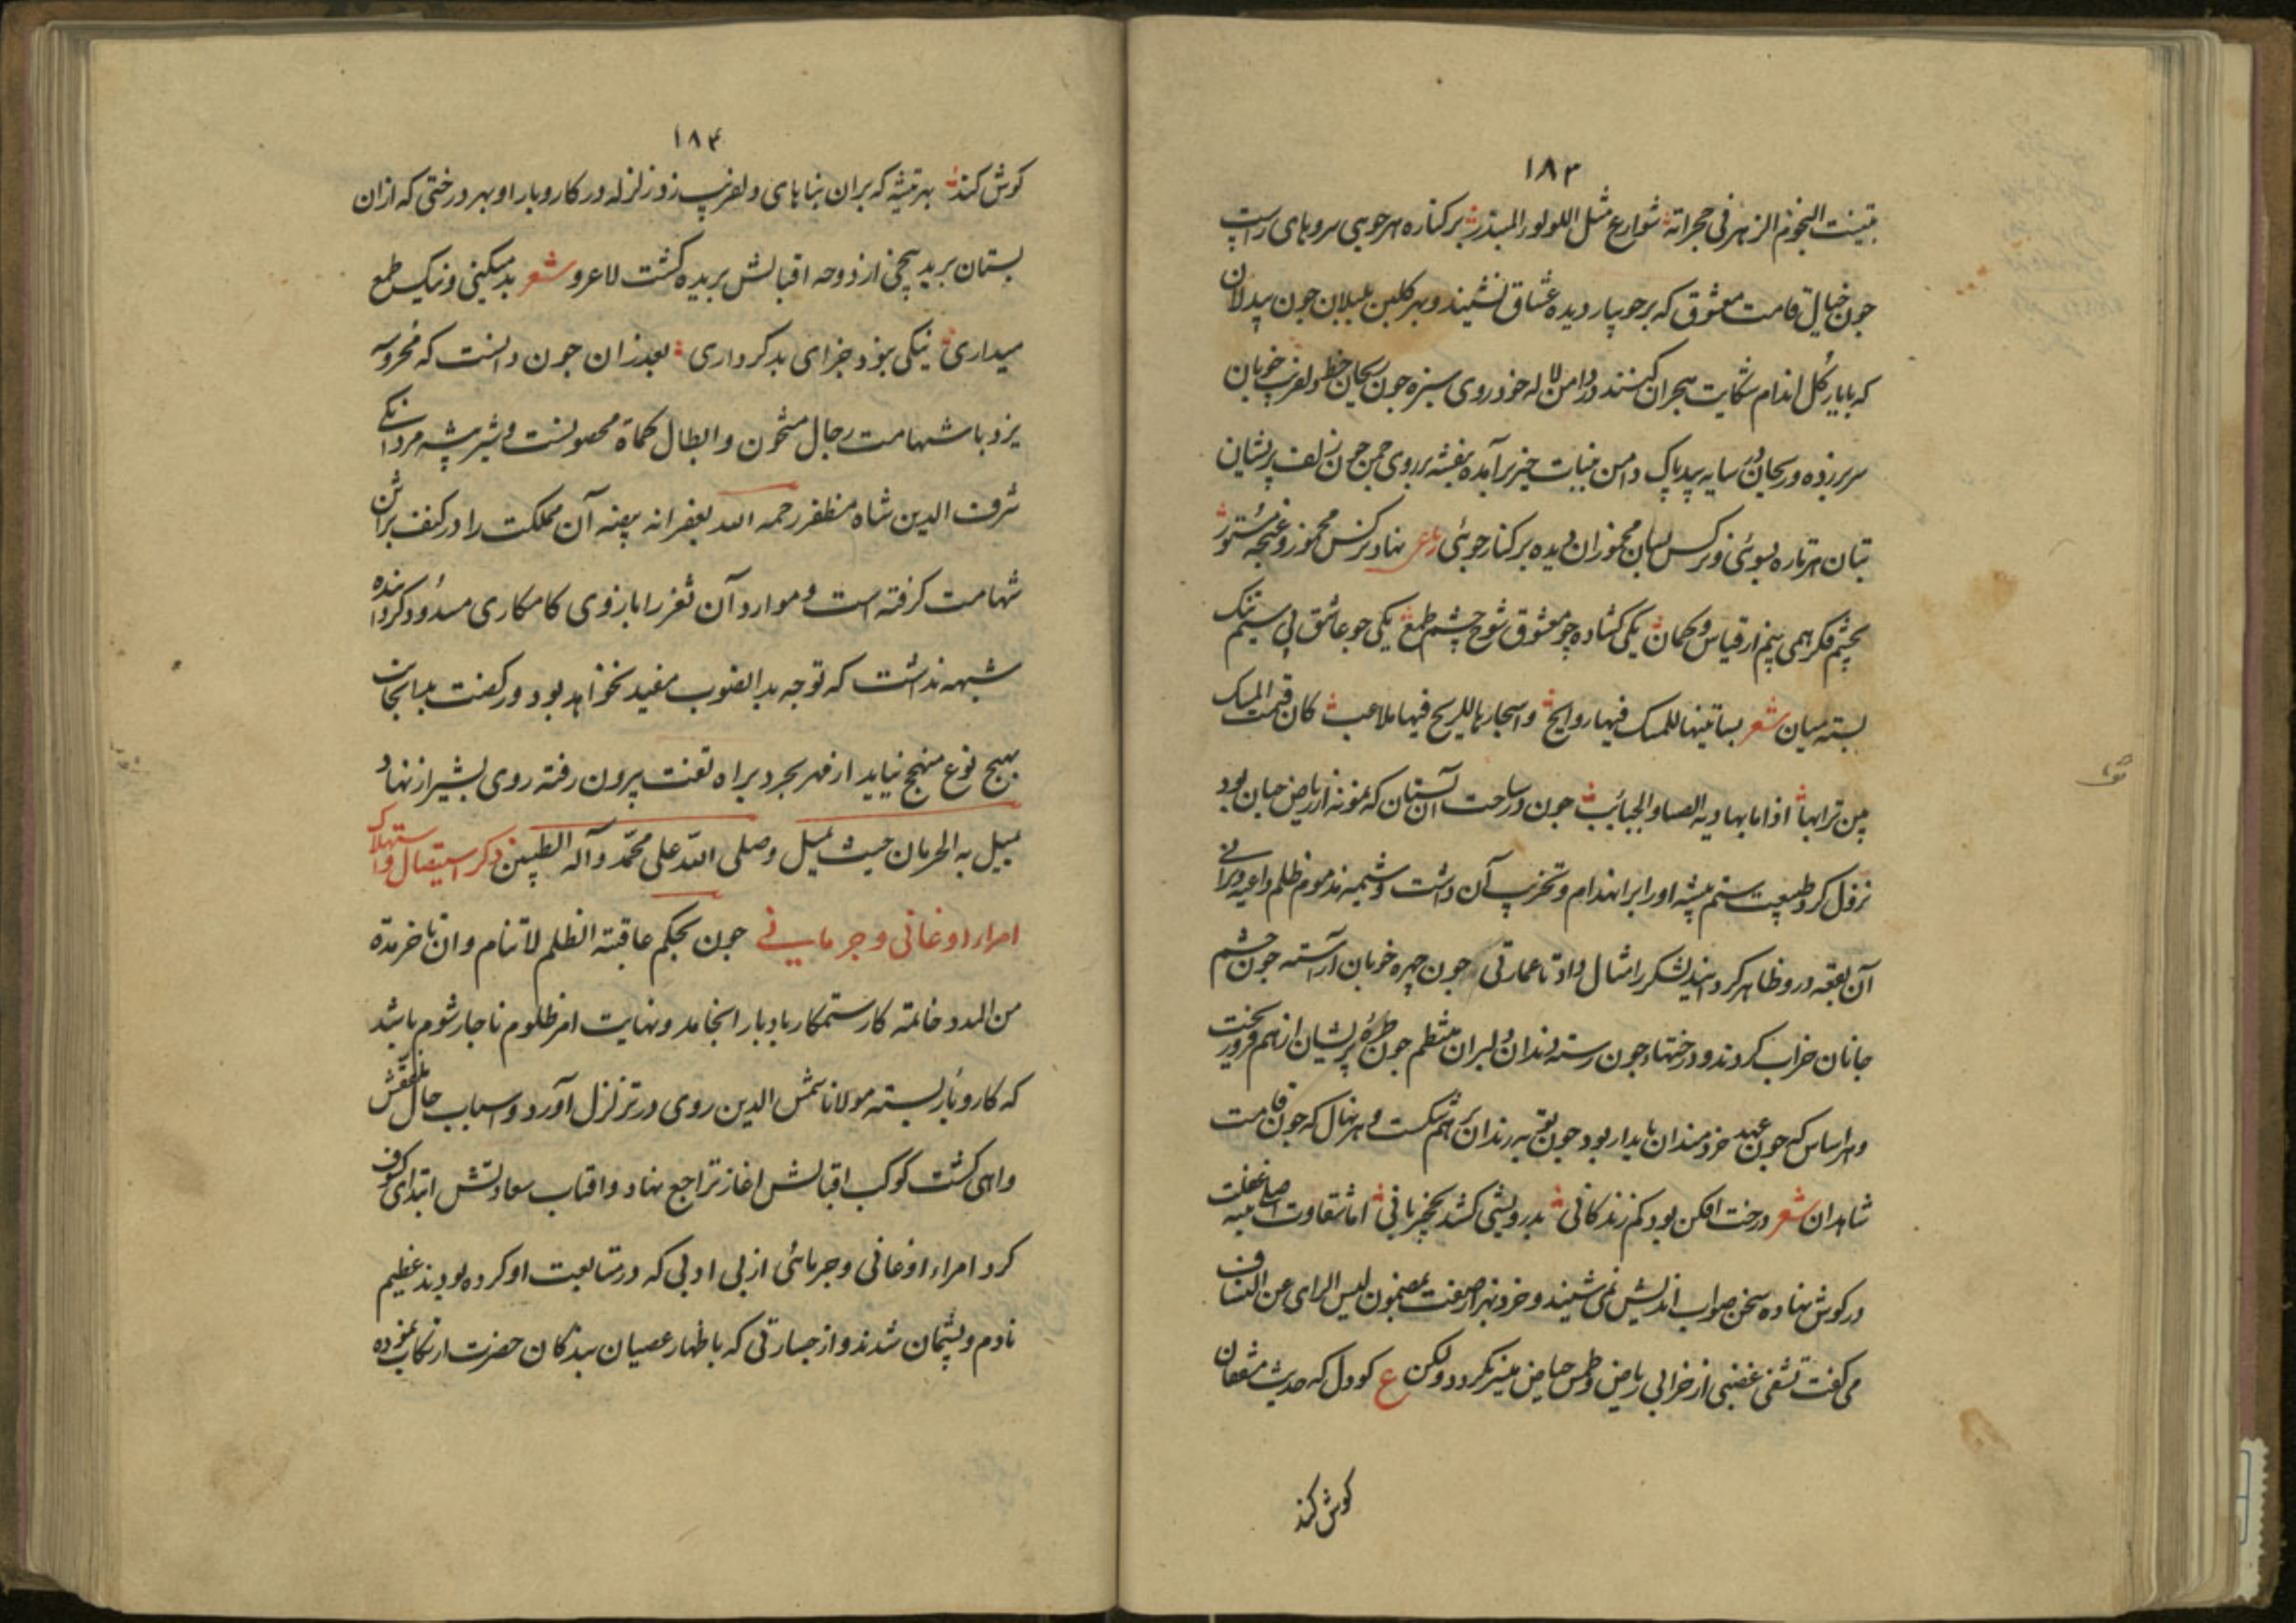 ۱۸۳
النجوم الزهر فی حجراته شوارع مثل اللولو المبذر بر کناره هر جویی سروهای راست
چون خیال قامت معشوق که بر جویبار دیده عشاق نشیند و بر کلبن بلبلان چون بیدلان
که با یار کل اندام شکایت هجران کنند در دامن لاله خودروی سبزه چون ریحان خط دلفریب خوبان
سر بر زده و ریحان در سایه بید پاک دامن برآمده بنفشه بر روی چمن چون زلف پریشان
بتان هر تاره بسوئی و نرکس بسان مخموران دیده بر کنار جوئی نهاد نرکس مخمور و غنچه مستور
بچشم فکر همی بینم از قیاس و کمان یکی کشاده چو معشوق شوخ چشم طمع یکی چو عاشق بی سیم تنک
بسته میان شعر بساتینها للمسک فیها روایح و اسحارها للریح فیها ملاعب کان المسک
بین ترابها اذا الصبا والجنائب چون در ساحت آن بستان که نمونه از ریاض جنان بود
نزول کرد طبیعت ستم پیشه او را بر انهدام و تخریب آن داشت و شیمه مذموم ظلم داعیه ویرانی
آن بقعه درو ظاهر کردانید لشکر را مثال داد تا عمارتی چون چهره خوبان آراسته چون چشم
جانان خراب کردند و درختها چون رسته دندان دلبران منتظم چون طره پریشان از هم فرو ریخت
و هر اساس که چون عهد خردمندان پایدار بود چون توبه رندان بر هم شکست و هر نهال که چون قامت
شاهدان شعر درخت افکن بود کم زندکانی بدرویشی کشد نخجیربانی اما شقاوت غفلت
در کوش نهاده سخن صواب اندیش نمی شنید و خرد بهزار صفت بمضمون لیس الرای عن
می کفت تشفی غضبی از خرابی ریاض و طمس حیاض میسر نکردد ولکن ع کو دل که حدیث مشفقان
کوش کند
۱۸۴
کوش کند بهر تیشه که بر ان بناهای دلفریب زد زلزله در کار و بار او بهر درختی که از ان
بستان برید بیخی از دوحه اقبالش بریده کشت لاغرو شعر بد میکنی و نیک طمع
میداری نیکی نبود جزای بد کرداری بعد از ان چون دانست که محروسه
یزد با شهامت رجال مشحون و ابطال کماة محصونست و شیر بیشه مردانکی
شرف الدین شاه مظفر رحمه الله بغفرانه بیضه آن مملکت را در کنف
شهامت کرفته است و موارد آن ثغر را بازوی کامکاری مسدود کرداننده
شبهه نداشت که توجه بدان صوب مفید نخواهد بود و رکضت بدان جانب
بهیچ نوع منهج نیاید از بجرد براه تفت بیرون رفته روی بشیراز نهاد
یمیل به الحرمان حیث یمیل وصلی الله علی محمد وآله الطیبین ذکر استیصال و استهلاک
امراء اوغانی و جرمایی چون بحکم عاقبة الظلم لاتنام و ان تاخر مدة
من المدد خاتمه کار ستمکار بادبار انجامد و نهایت امر ظلوم ناچار شوم باشد
که کار و بار بسته مولانا شمس الدین روی در تزلزل آورد و اسباب حال
واهی کشت کوکب اقبالش اغاز تراجع نهاد و افتاب سعادتش ابتدای کسوف
کرد امراء اوغانی و جرمائی از بی ادبی که در متابعت او کرده بودند عظیم
نادم و پشیمان شدند و از جسارتی که باظهار عصیان بندکان حضرت ارتکاب نموده